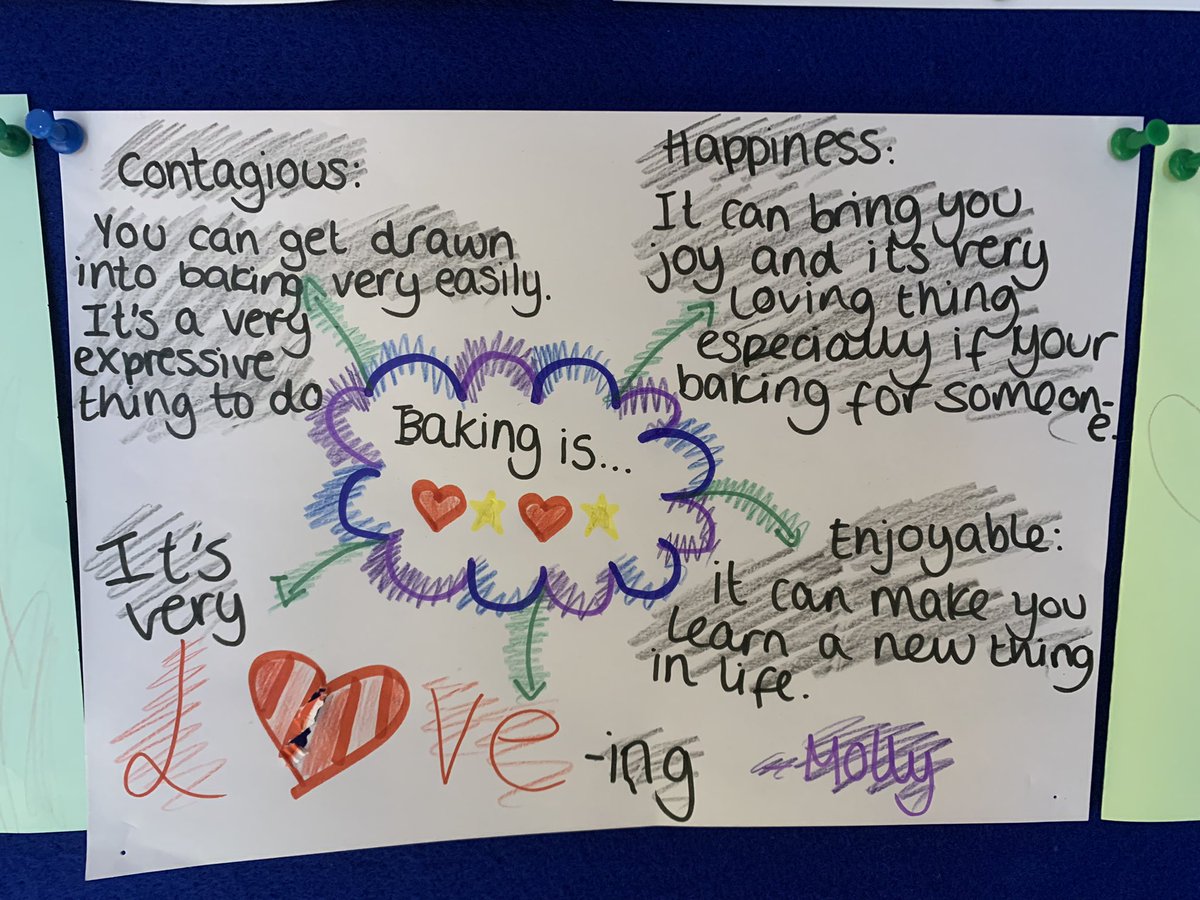 Contagious:
You can get drawn
into baking very easily.
It's a very
expressive
thing to do
Happiness:
It can bring you
joy and its very
loving thing
especially if your
baking for someon-
e.
Baking is...
Enjoyable:
it can make you
learn a new thing
in life.
It's
very
L♥ve
-ing
-Molly